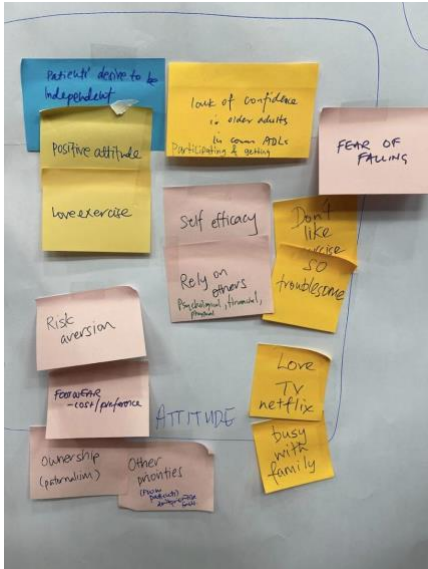 Patients' desire to be
independent
Positive attitude
Love exercise
lack of confidence
in older adults
in comm ADLs
Participating & getting
FEAR OF
FALLING
Self efficacy
Rely on
others
Psychological, financial,
physical
Don't
like
exercise
SO
troublesome
Risk
aversion
FOOTWEAR
- cost/preference
ATTITUDE
Love
TV
netflix
busy
with
family
Ownership
(paternalism)
Other
priorities